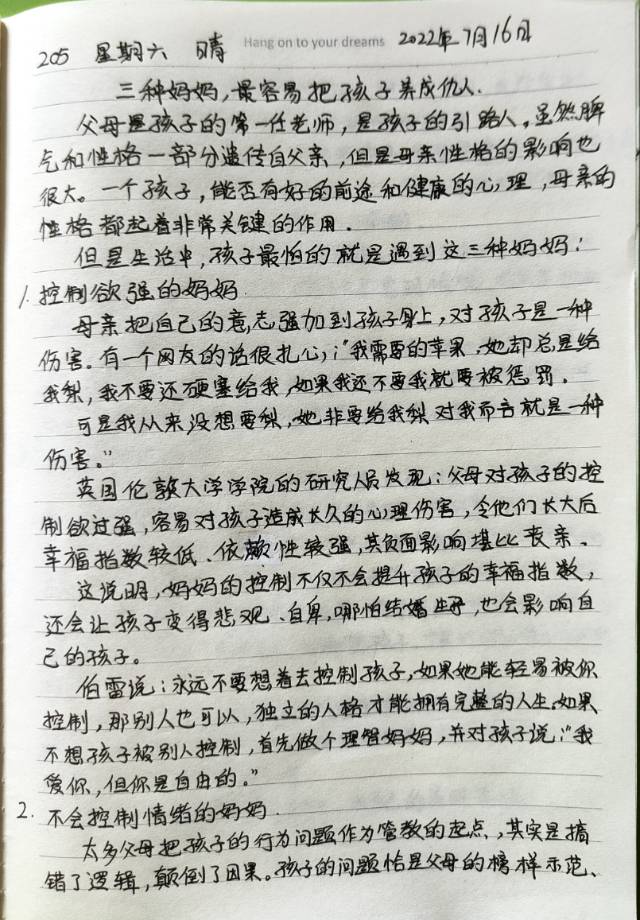 205 星期六 晴 Hang on to your dreams 2022年7月16日
三种妈妈,最容易把孩子养成仇人.
父母是孩子的第一任老师,是孩子的引路人。虽然脾
气和性格一部分遗传自父亲,但是母亲性格的影响也
很大。一个孩子,能否有好的前途和健康的心理,母亲的
性格都起着非常关键的作用.
但是生活中,孩子最怕的就是遇到这三种妈妈:
1. 控制欲强的妈妈
母亲把自己的意志强加到孩子身上,对孩子是一种
伤害。有一个网友的话很扎心:“我需要的苹果,她却总是给
我梨,我不要还硬塞给我,如果我还不要我就要被惩罚.
可是我从来没想要梨,她非要给我梨对我而言就是一种
伤害。”
英国伦敦大学学院的研究人员发现:父母对孩子的控
制欲过强,容易对孩子造成长久的心理伤害,令他们长大后
幸福指数较低、依赖性较强,其负面影响堪比丧亲.
这说明,妈妈的控制不仅不会提升孩子的幸福指数,
还会让孩子变得悲观、自卑,哪怕结婚生子,也会影响自
己的孩子。
伯雷说:永远不要想着去控制孩子,如果她能轻易被你
控制,那别人也可以,独立的人格才能拥有完整的人生.如果
不想孩子被别人控制,首先做个理智妈妈,并对孩子说:“我
爱你,但你是自由的。”
2. 不会控制情绪的妈妈.
太多父母把孩子的行为问题作为管教的起点,其实是搞
错了逻辑,颠倒了因果。孩子的问题恰是父母的榜样示范、